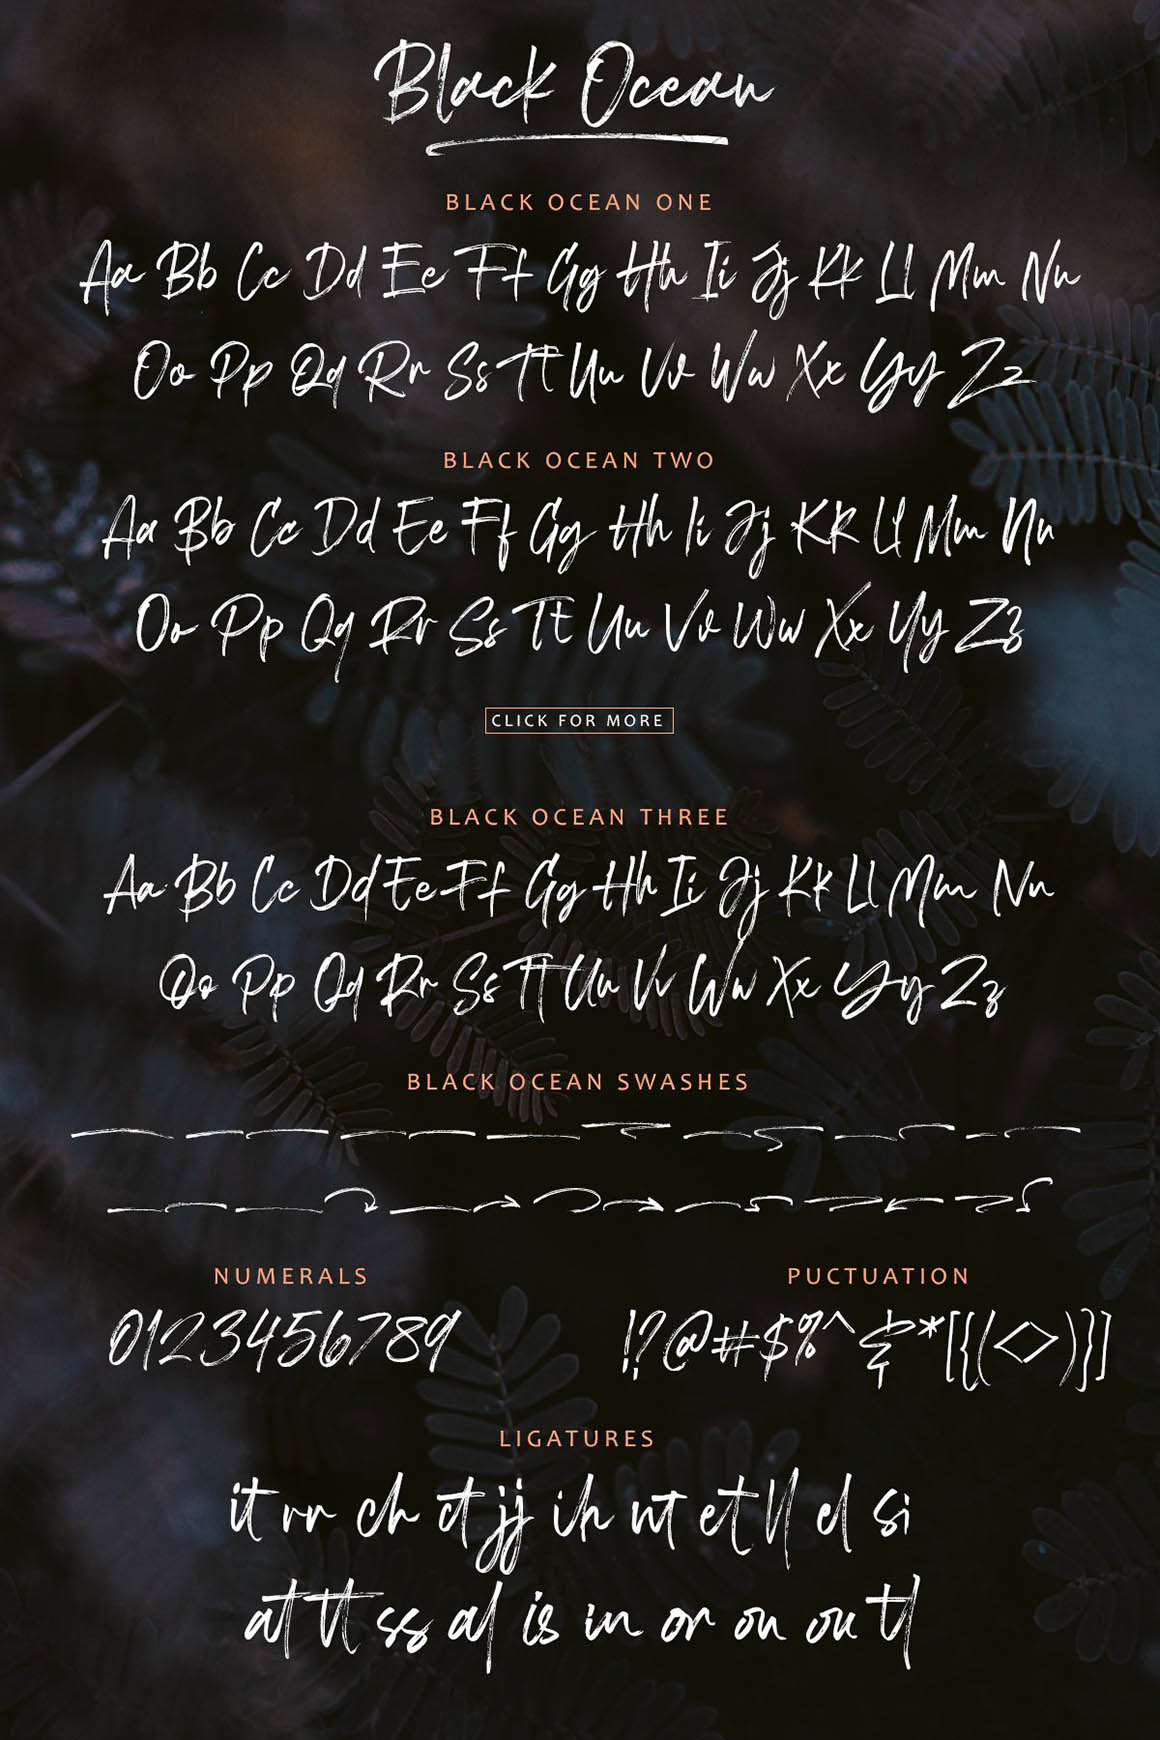 Black Ocean
BLACK OCEAN ONE
Aa Bb Cc Dd Ee Ff Gg Hh Ii Jj Kk Ll Mm Nn
Oo Pp Qq Rr Ss Tt Uu Vv Ww Xx Yy Zz
BLACK OCEAN TWO
Aa Bb Cc Dd Ee Ff Gg Hh Ii Jj Kk Ll Mm Nn
Oo Pp Qq Rr Ss Tt Uu Vv Ww Xx Yy Zz
CLICK FOR MORE
BLACK OCEAN THREE
Aa Bb Cc Dd Ee Ff Gg Hh Ii Jj Kk Ll Mm Nn
Oo Pp Qq Rr Ss Tt Uu Vv Ww Xx Yy Zz
BLACK OCEAN SWASHES
NUMERALS
0123456789
PUCTUATION
!?@#$%^&*[{(<>)}]
LIGATURES
it rr ch ct jj ih nt et ll el si
at tt ss al is in or on ou tl